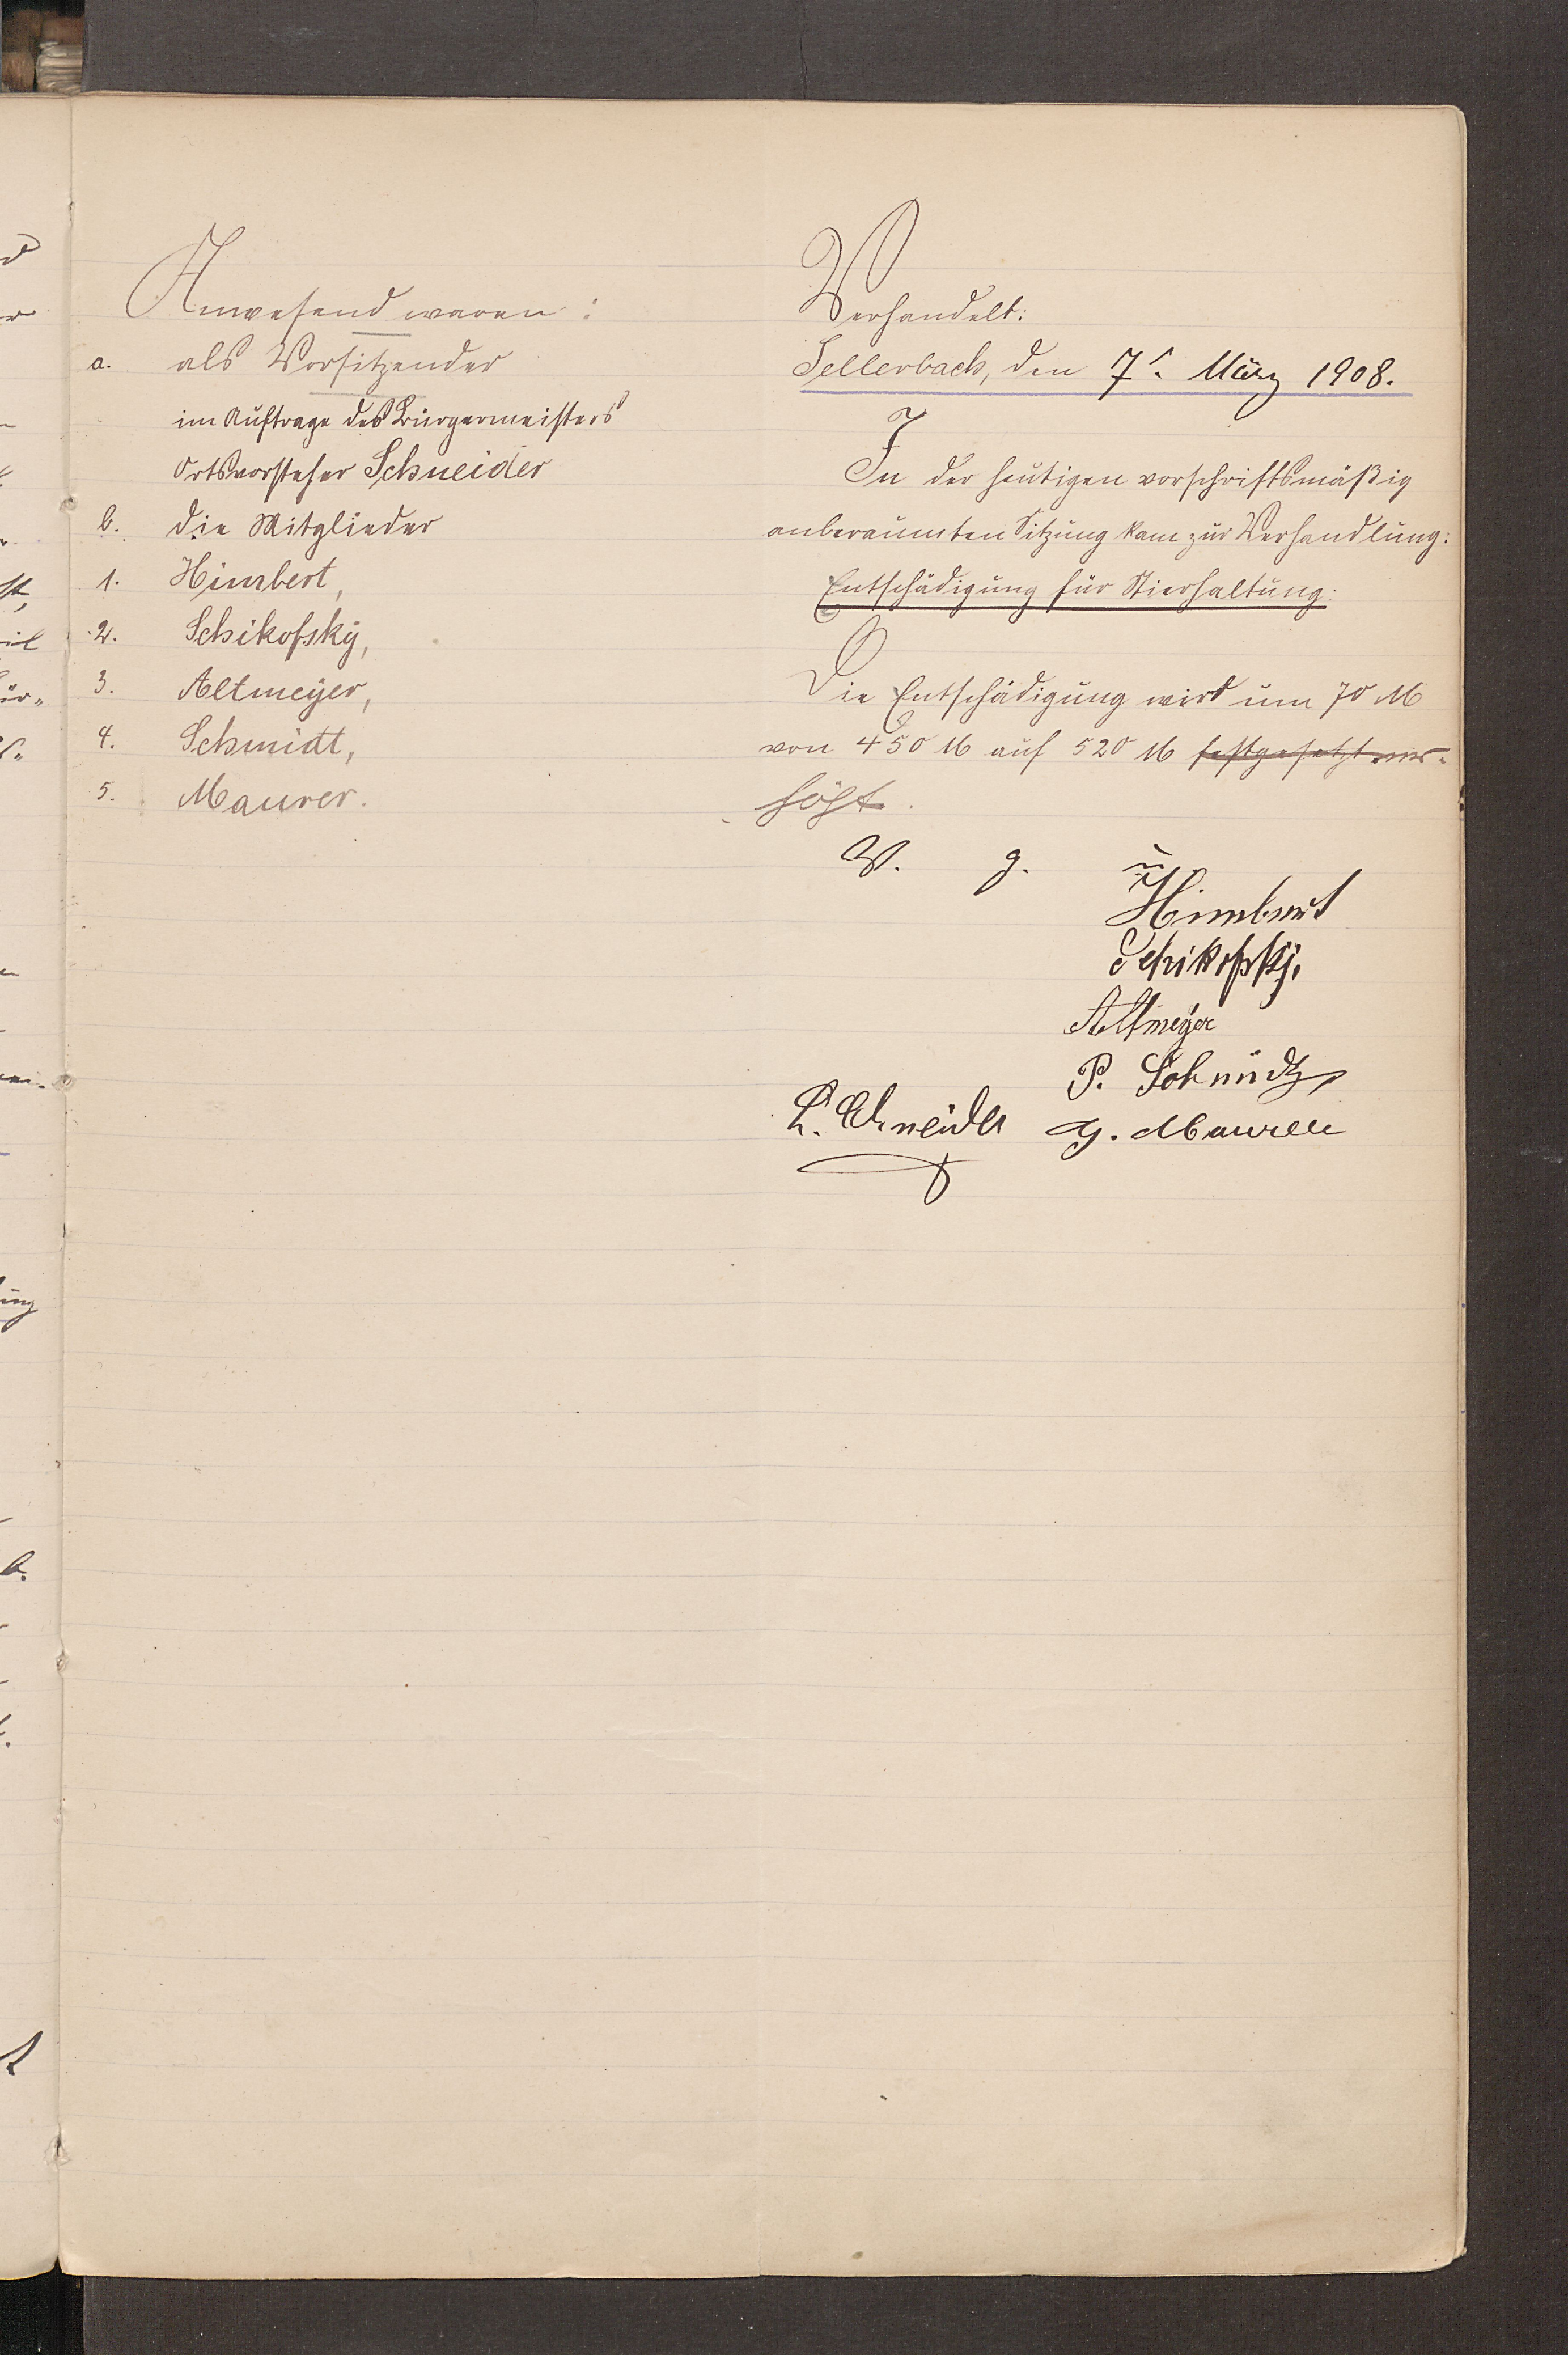 Anwesend waren:
a. als Vorsitzender
im Auftrage des Bürgermeisters
Ortsvorsteher Schneider
b. die Mitglieder
1. Himbert,
2. Schikofsky,
3. Altmeyer,
4. Schmidt,
5. Maurer.
Verhandelt:
Sellerbach, den 7t. März 1908.
In der heutigen vorschriftsmäßig
anberaumten Sitzung kam zur Verhandlung:
Entschädigung für Stierhaltung:
Die Entschädigung wird um 70 M
von 450 M auf 520 M festgesetzt er-
höht.
V. g. u.
Himbert
Schikofsky.
Altmeyer
P. Schmidt
L. Schneider G. Maurer